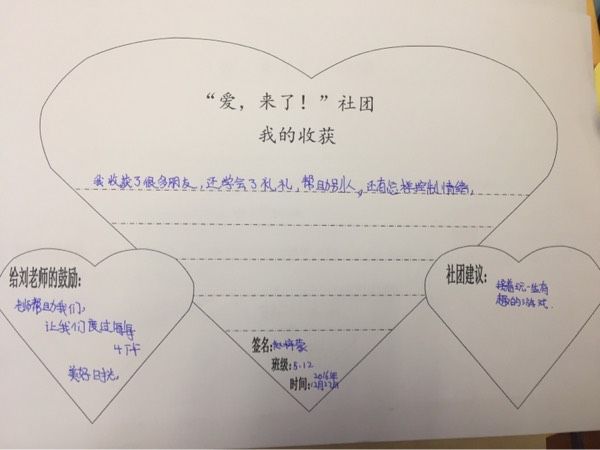 “爱，来了！”社团
我的收获
我收获了很多朋友，还学会了礼礼，帮助别人，还有怎样控制情绪。
给刘老师的鼓励：
老师帮助我们，
让我们度过
美好日光，
社团建议：
接着玩一些有
趣的游戏．
签名：
班级：5.12
时间：2016年
12月27日